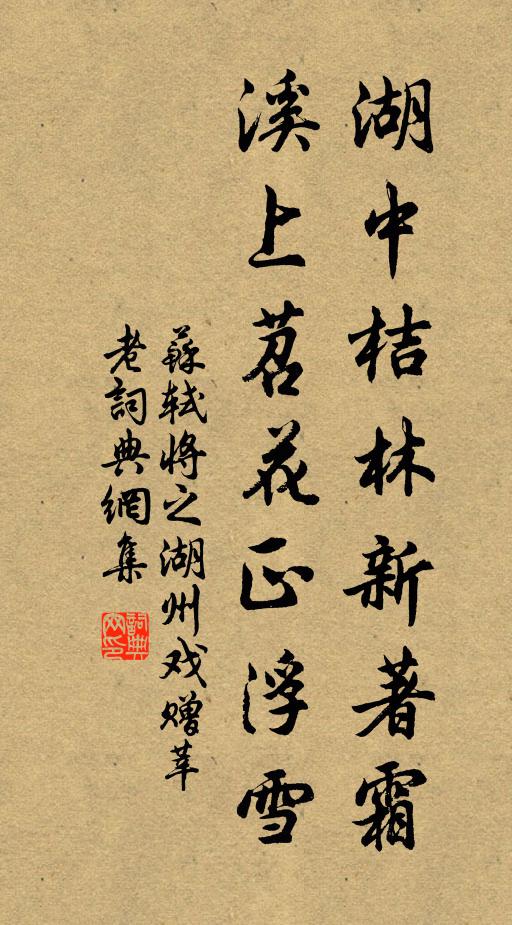 湖中桔林新著霜
溪上苕花正浮雪
蘇軾將之湖州戏赠莘
老詞典網集
詞典網印